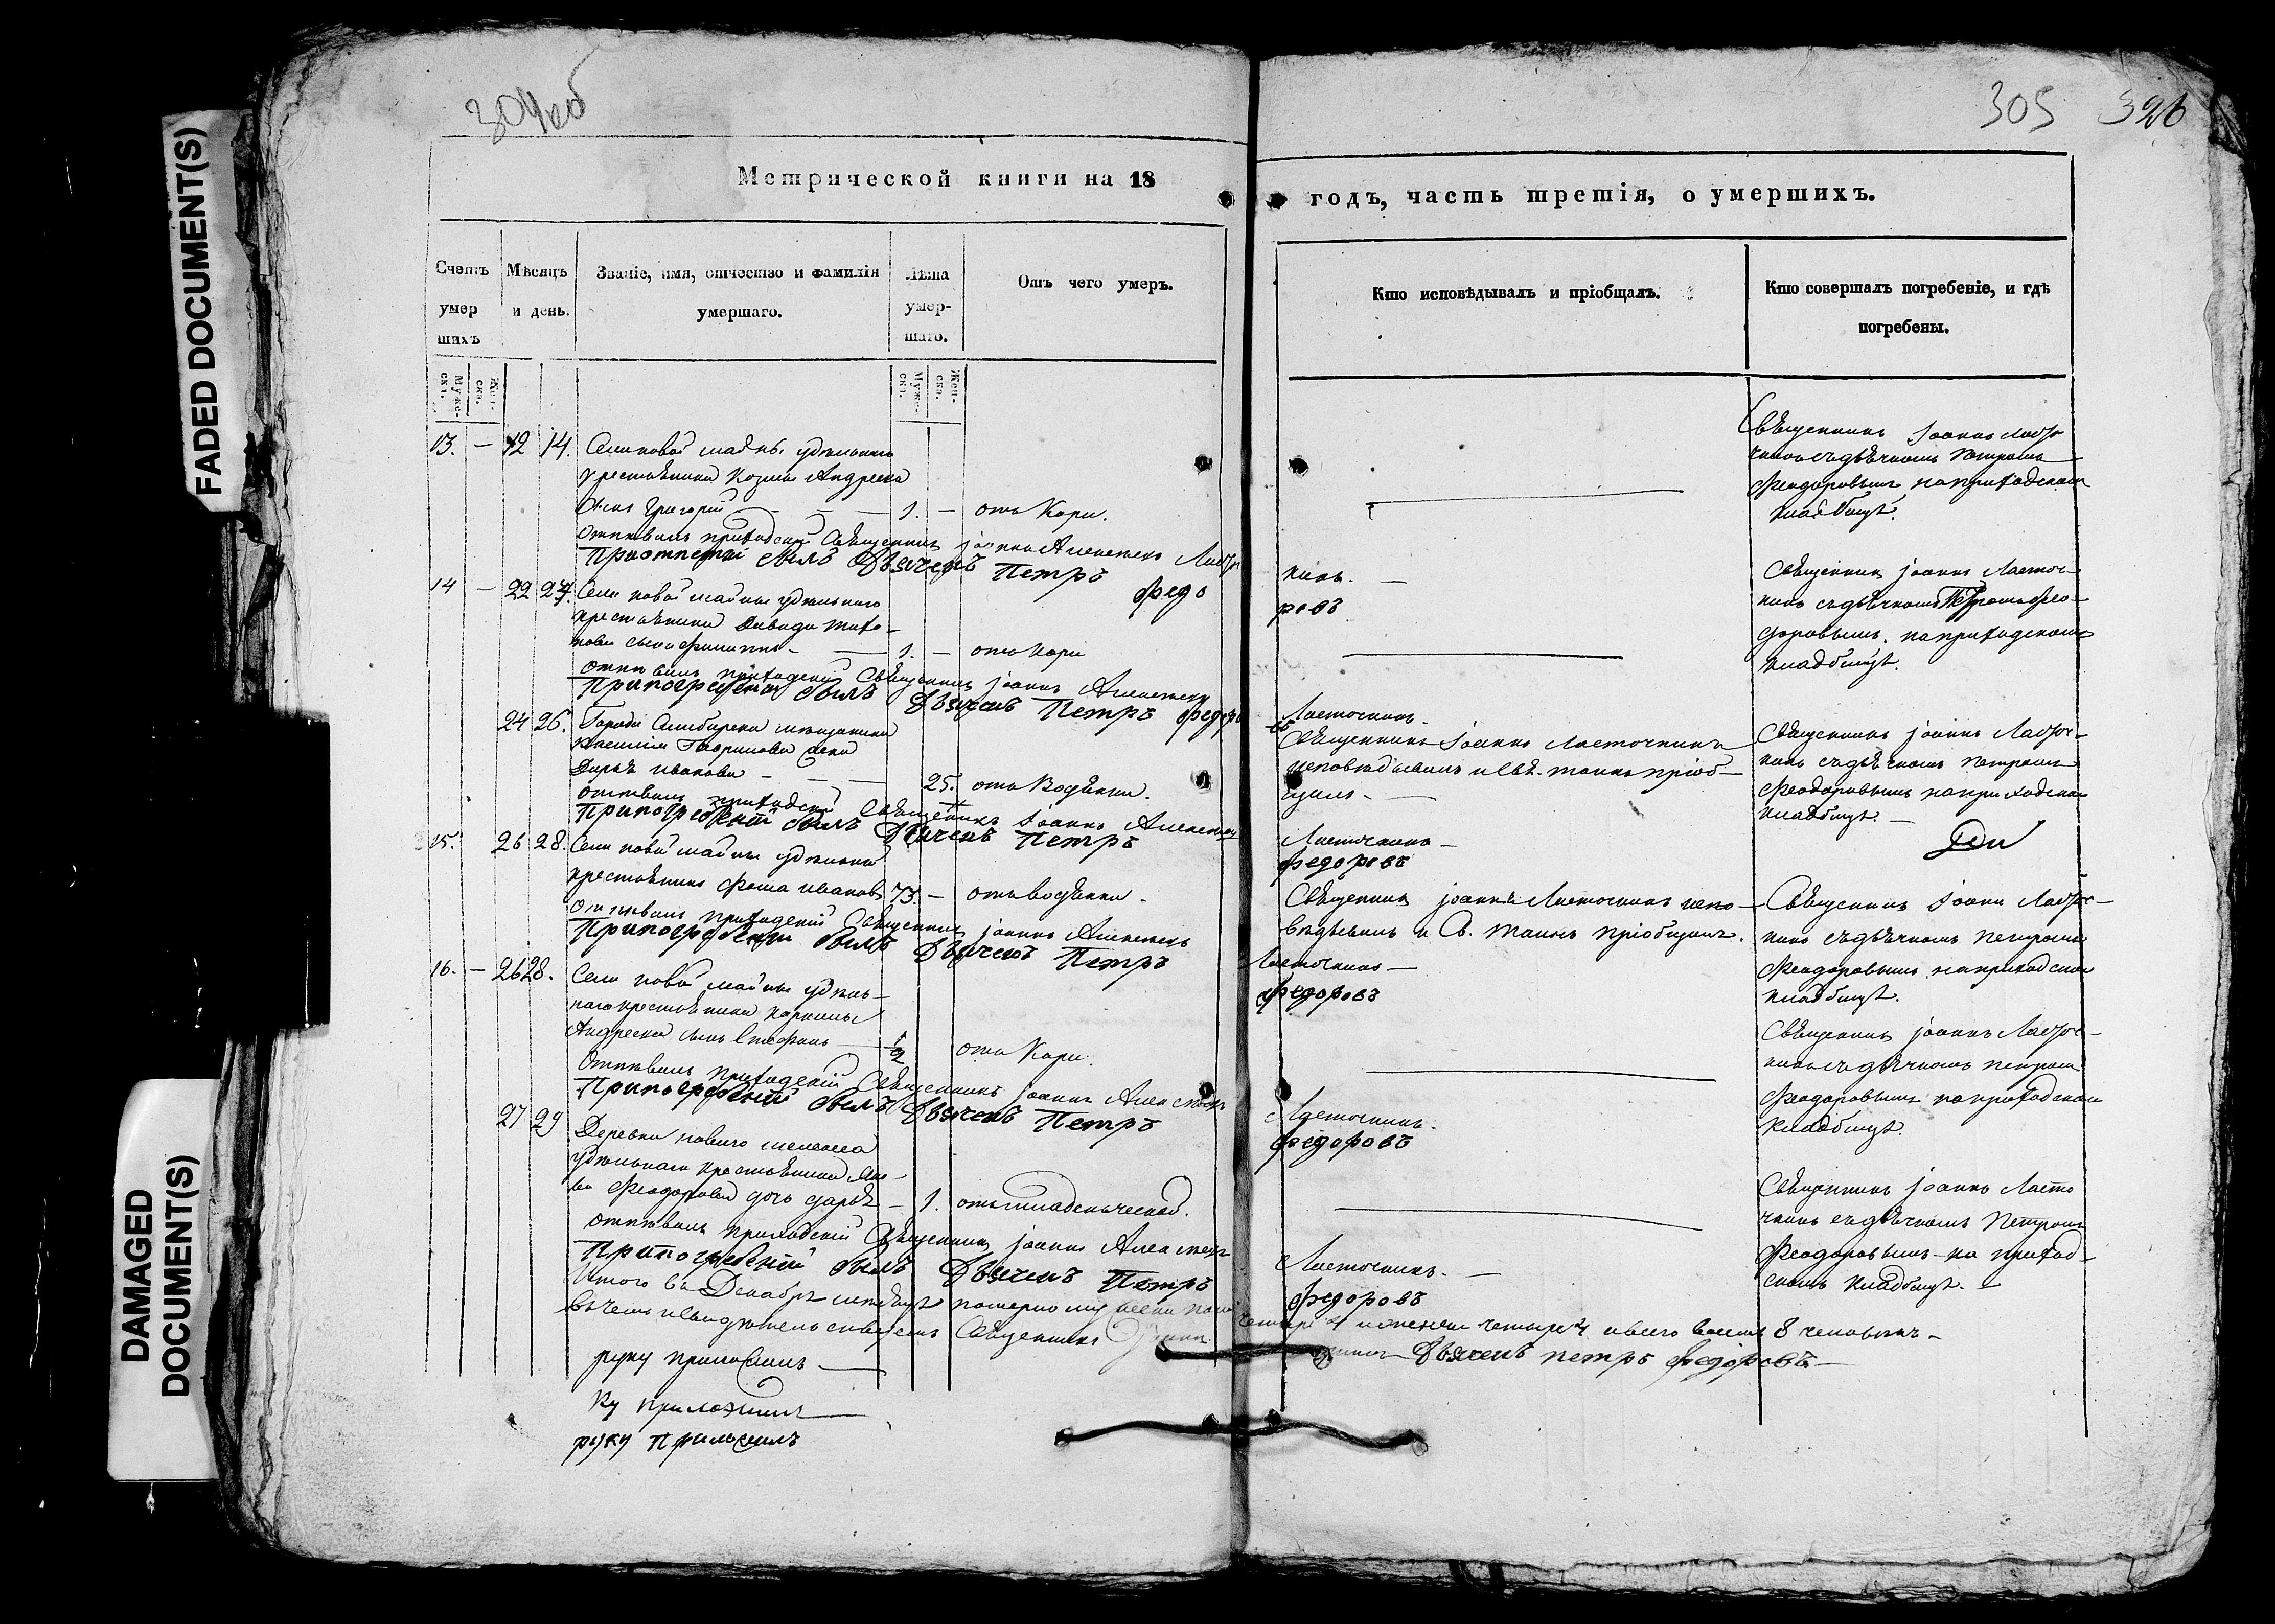 FADED DOCUMENT(S)
DAMAGED
DOCUMENT(S)
304об
305 326
Метрической книги на 18
годъ, часть третія, о умершихъ.
Счетъ умер шихъ
Мѣсяцъ и день.
Званіе, имя, отчество и фамилія умершаго.
Лѣта умер- шаго.
Отъ чего умеръ.
Кто исповѣдывалъ и пріобщалъ.
Кто совершалъ погребеніе, и гдѣ погребены.
Муже- ска.
Жен- ска.
Муже- ска.
Жен- ска.
13. — 12 14. Села новой майны удѣльнаго
крестьянина Козмы Андреева
сынъ Григорій — — — 1. — отъ Кори.
Священникъ Іоаннъ Ласточ
кинъ съ дьячкомъ Петромъ
Феодоровымъ на приходскомъ
кладбищѣ.
отпѣвалъ приходскій Священникъ Іоаннъ Алексѣевъ Ласточ
кинъ. —
При отпетіи былъ Дьячекъ Петръ Федо
ровъ
14 — 22 24. Села новой майны удѣльнаго
крестьянина Давида Тихо-
нова сынъ Филиппъ — — 1. — отъ Кори
Священникъ Іоаннъ Ласточ-
кинъ съ дьячкомъ Петромъ Фео-
доровымъ. на приходскомъ
кладбищѣ.
отпѣвалъ приходскій Священникъ Іоаннъ Алексѣевъ
Ласточкинъ.
При погребеніи былъ Дьячекъ Петръ Федоро
въ
24 26. Города Симбирска мещанина
Василія Гаврилова жена
Дарья Иванова — — — 25. отъ Водянки.
Священникъ Іоаннъ Ласточкинъ
исповѣдывалъ и Свя. таинъ пріоб-
щилъ. —
Священникъ Іоаннъ Ласточ-
кинъ съ дьячкомъ Петромъ
Феодоровымъ на приходскомъ
кладбищѣ. —
отпѣвалъ приходскій Священникъ Іоаннъ Алексѣевъ
Ласточкинъ —
При погребеніи былъ Дьячекъ Петръ
Федоровъ
15. 26 28. Села новой майны удѣльный
крестьянинъ Фома Ивановъ 73. — отъ водянки.
Священникъ Іоаннъ Ласточкинъ испо-
вѣдывалъ и Св. таинъ пріобщилъ.
Священникъ Іоаннъ Ласточ-
кинъ съ дьячкомъ Петромъ
Феодоровымъ на приходскомъ
кладбищѣ.
отпѣвалъ приходскій Священникъ Іоаннъ Алексѣевъ
Ласточкинъ —
При погребеніи былъ Дьячекъ Петръ
Федоровъ
16. — 26 28. Села новой майны удѣль-
наго крестьянина
Андреева сынъ Стефанъ — 1/2 отъ Кори.
Священникъ Іоаннъ Ласточ-
кинъ съ дьячкомъ Петромъ
Феодоровымъ на приходскомъ
кладбищѣ.
Отпѣвалъ приходскій Священникъ Іоаннъ Алексѣевъ
Ласточкинъ.
При погребеніи былъ Дьячекъ Петръ
Федоровъ
27 29 Деревни новаго
удѣльнаго крестьянина
Феодорова дочь Дарья — 1. отъ младенческой.
Священникъ Іоаннъ Ласто
чкинъ съ дьячкомъ Петромъ
Феодоровымъ на приход-
скомъ кладбищѣ. —
отпѣвалъ приходскій Священникъ Іоаннъ Алексѣевъ
Ласточкинъ. —
При погребеніи былъ Дьячекъ Петръ
Федоровъ
Итого въ Декабрѣ мѣсяцѣ померло четыре 4 женска четыре 4 и всего восемь 8 человѣкъ —
въ чемъ и свидѣтельствуемъ Священникъ Іоаннъ Дьячекъ Петръ Федоровъ —
руку приложилъ —
ку приложилъ —
руку приложилъ